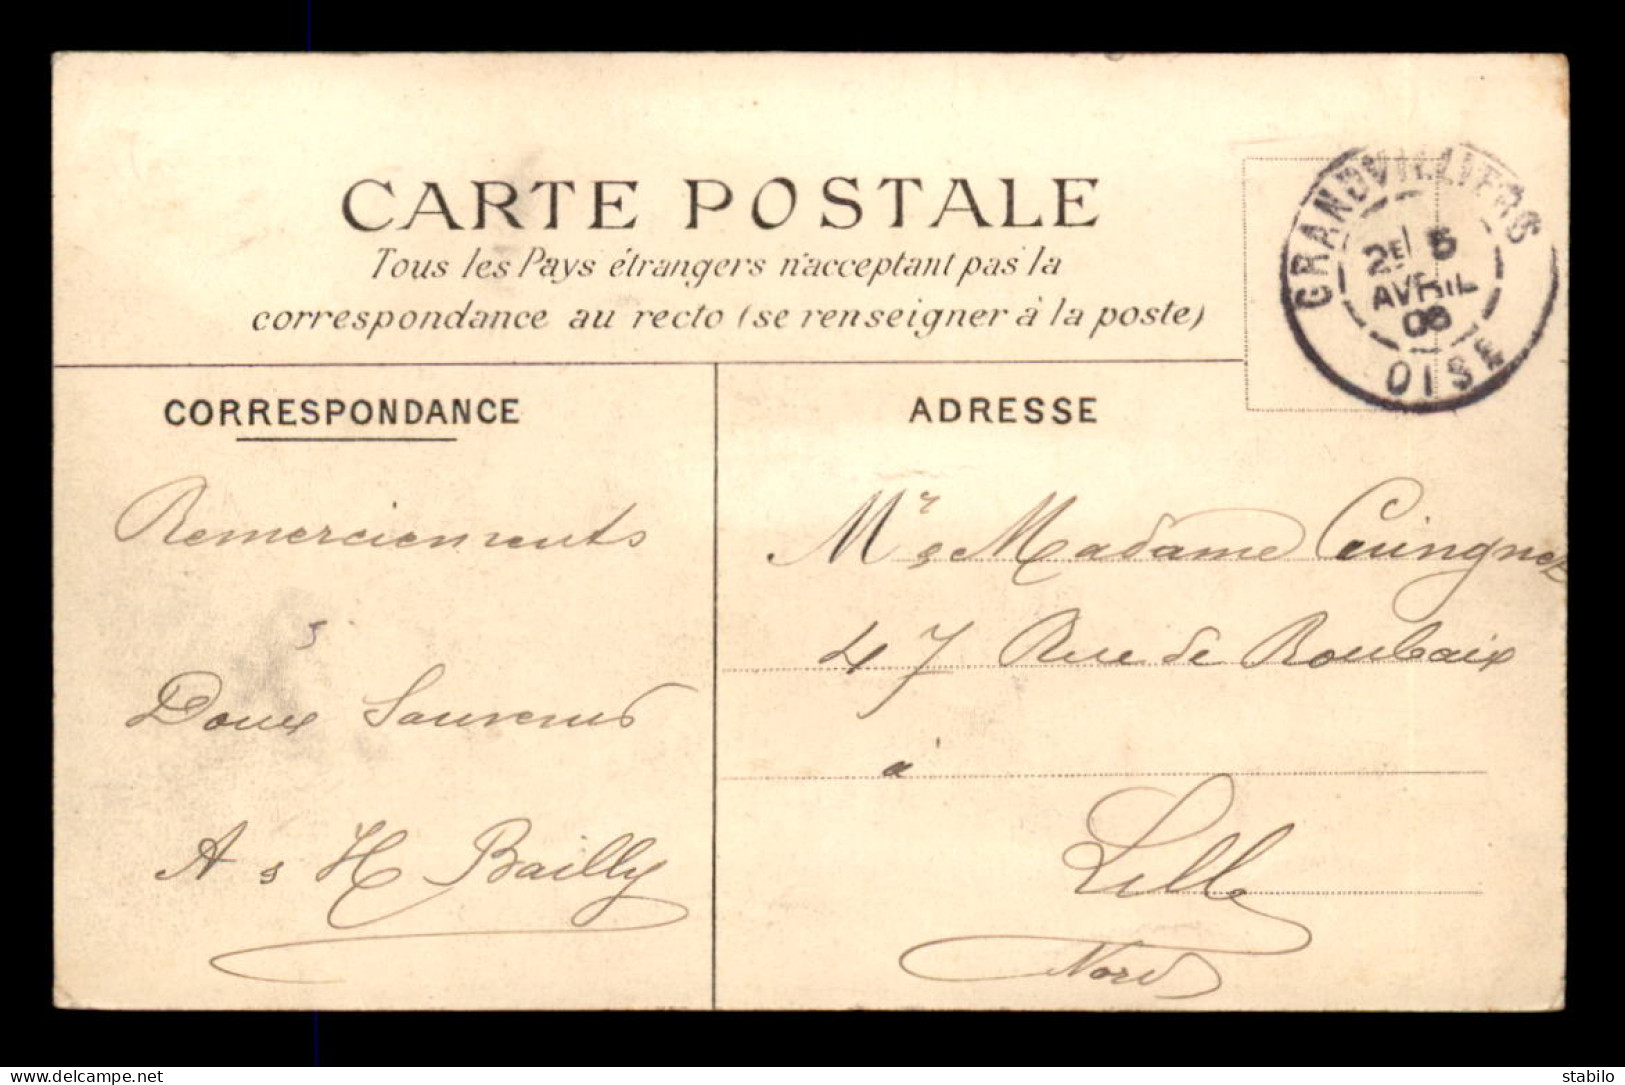 CARTE POSTALE
Tous les Pays étrangers n'acceptant pas la
correspondance au recto (se renseigner à la poste)
GRANDVILLIERS
2E 5
AVRIL
OISE
CORRESPONDANCE
Remerciements
&
Doux Souvenirs
A & H Bailly
ADRESSE
Mr & Madame
47 Rue de Roubaix
à
Lille
Nord
delcampe.net
stabilo